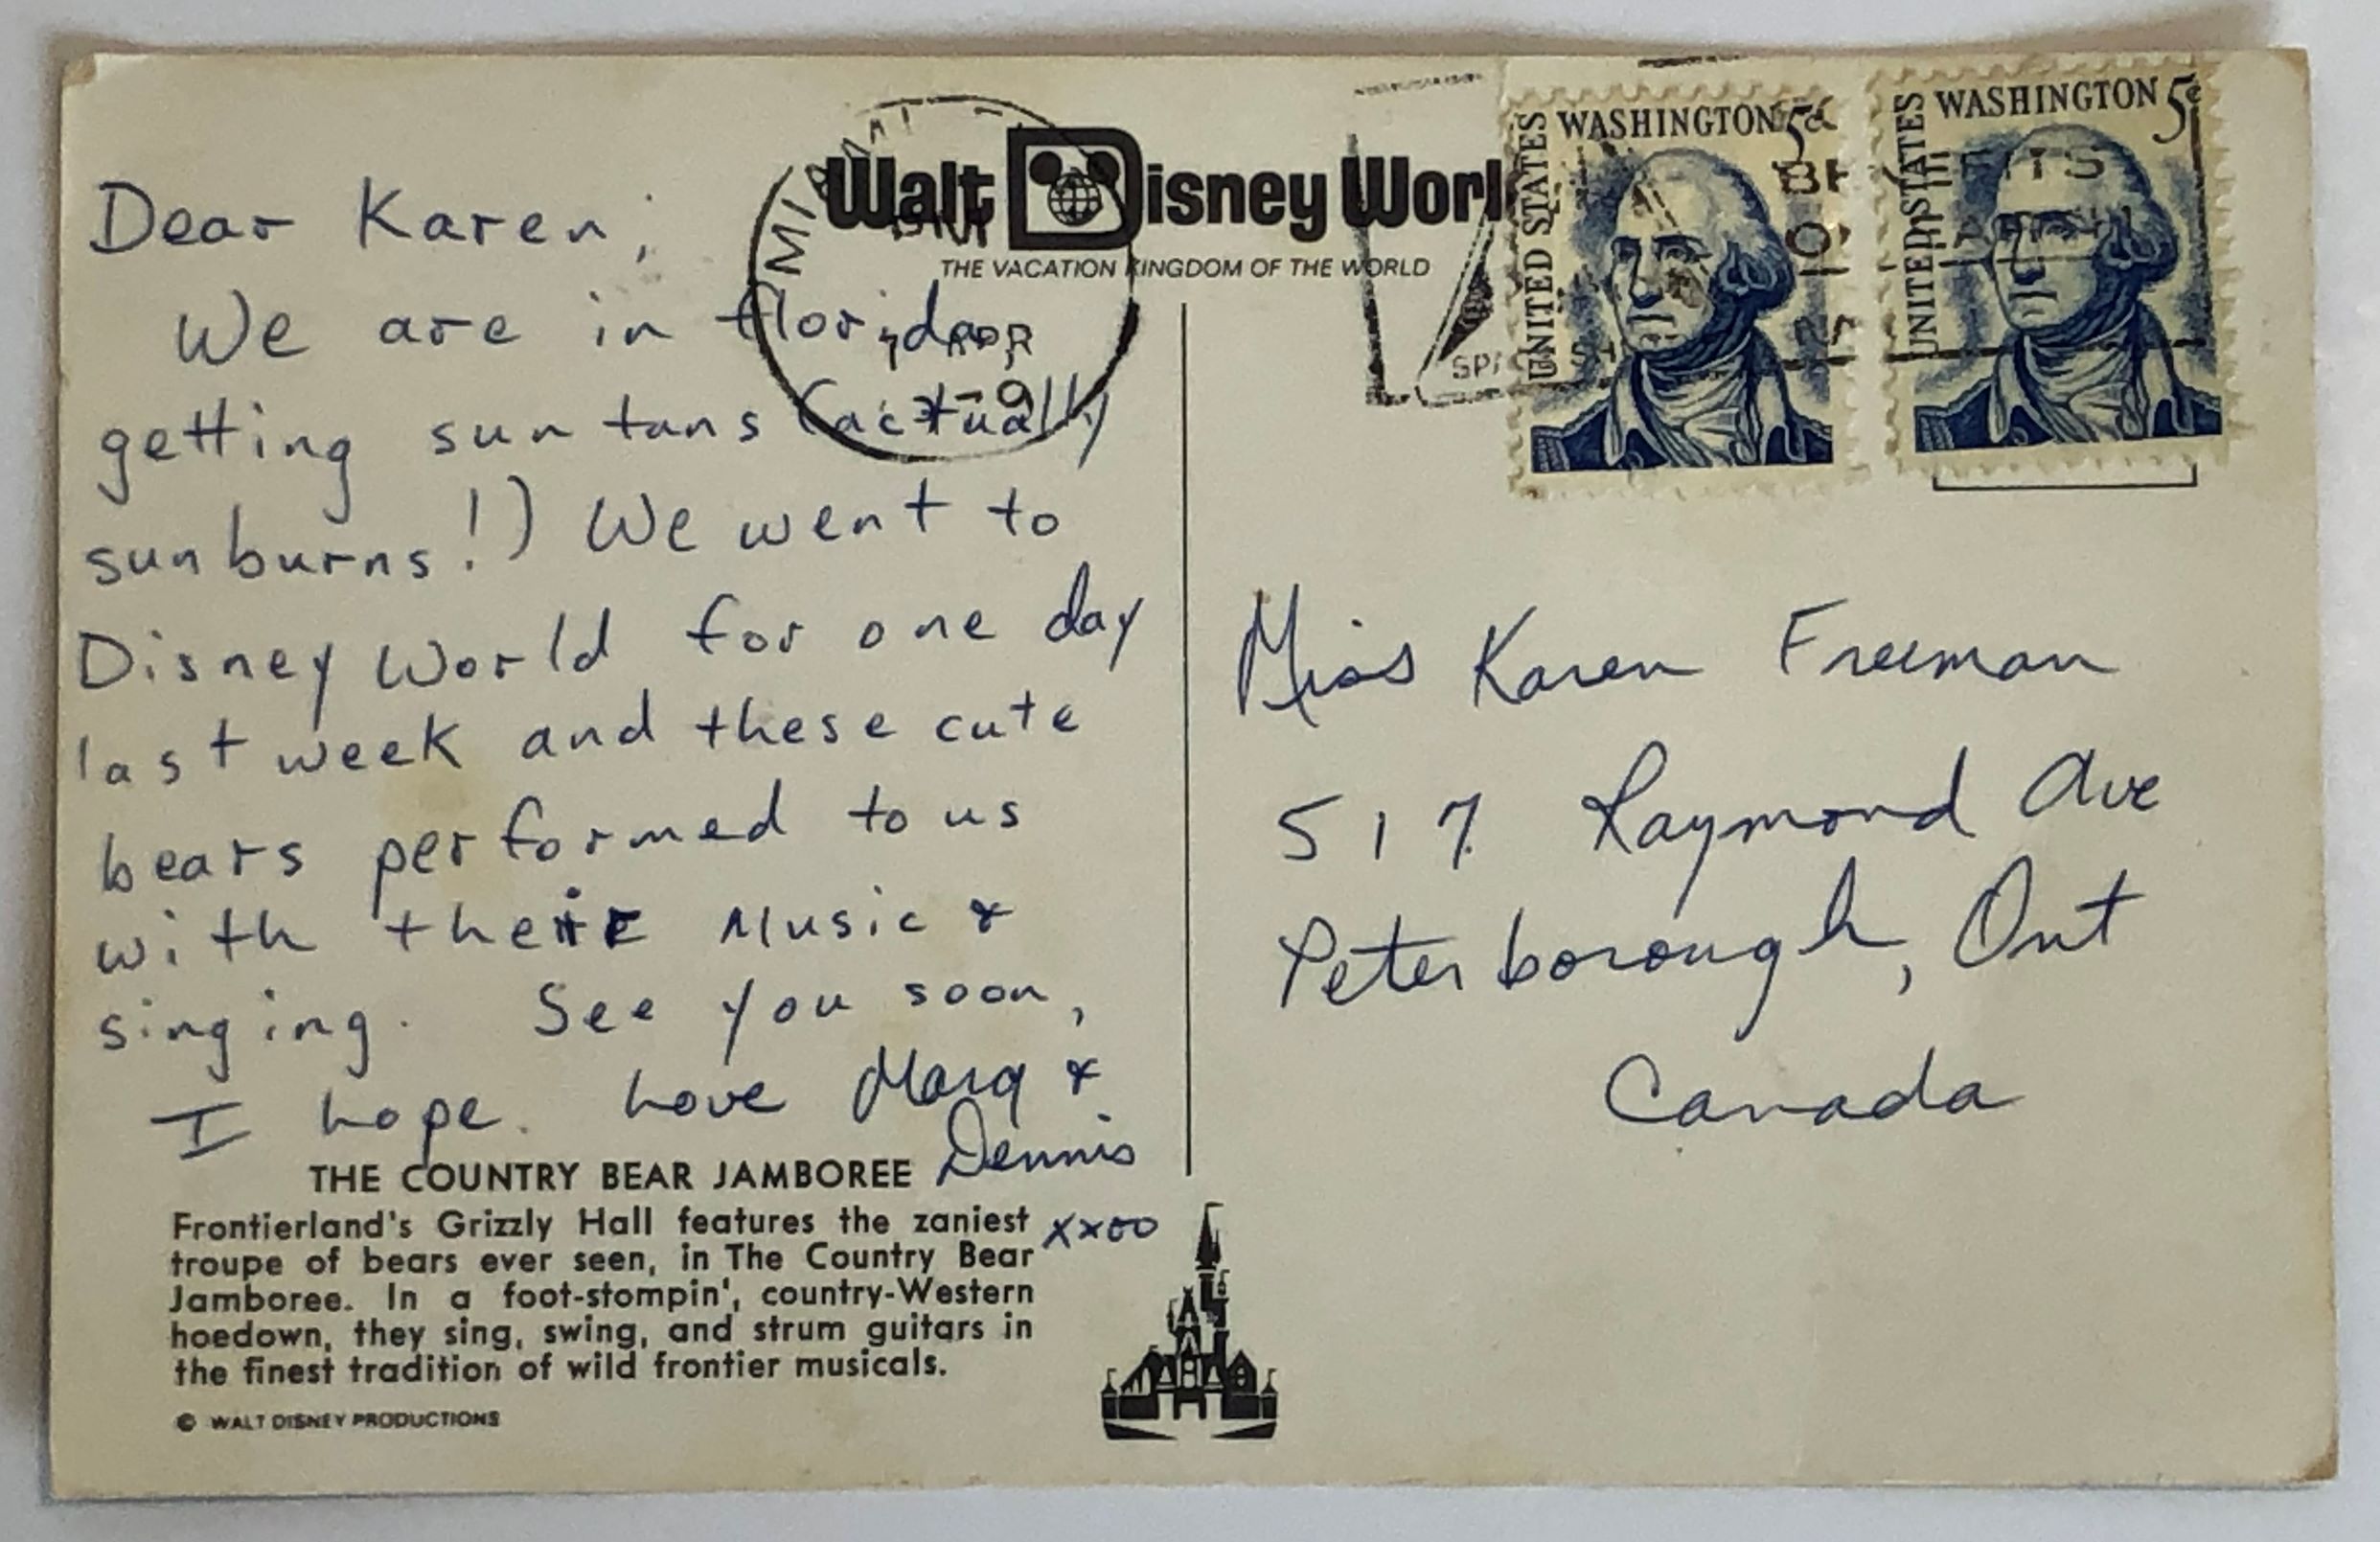 Dear Karen,
We are in florida,
getting sun tans (actually
sunburns!) We went to
Disney World for one day
last week and these cute
bears performed to us
with their Music &
singing. See you soon,
I hope. Love Marg &
Dennis
xxoo
THE COUNTRY BEAR JAMBOREE
Frontierland's Grizzly Hall features the zaniest
troupe of bears ever seen, in The Country Bear
Jamboree. In a foot-stompin', country-Western
hoedown, they sing, swing, and strum guitars in
the finest tradition of wild frontier musicals.
© WALT DISNEY PRODUCTIONS
Walt Disney Worl
THE VACATION KINGDOM OF THE WORLD
MIAMI
PM
APR
UNITED STATES
WASHINGTON 5¢
UNITED STATES
WASHINGTON 5¢
Miss Karen Freeman
517 Raymond Ave
Peterborough, Ont
Canada